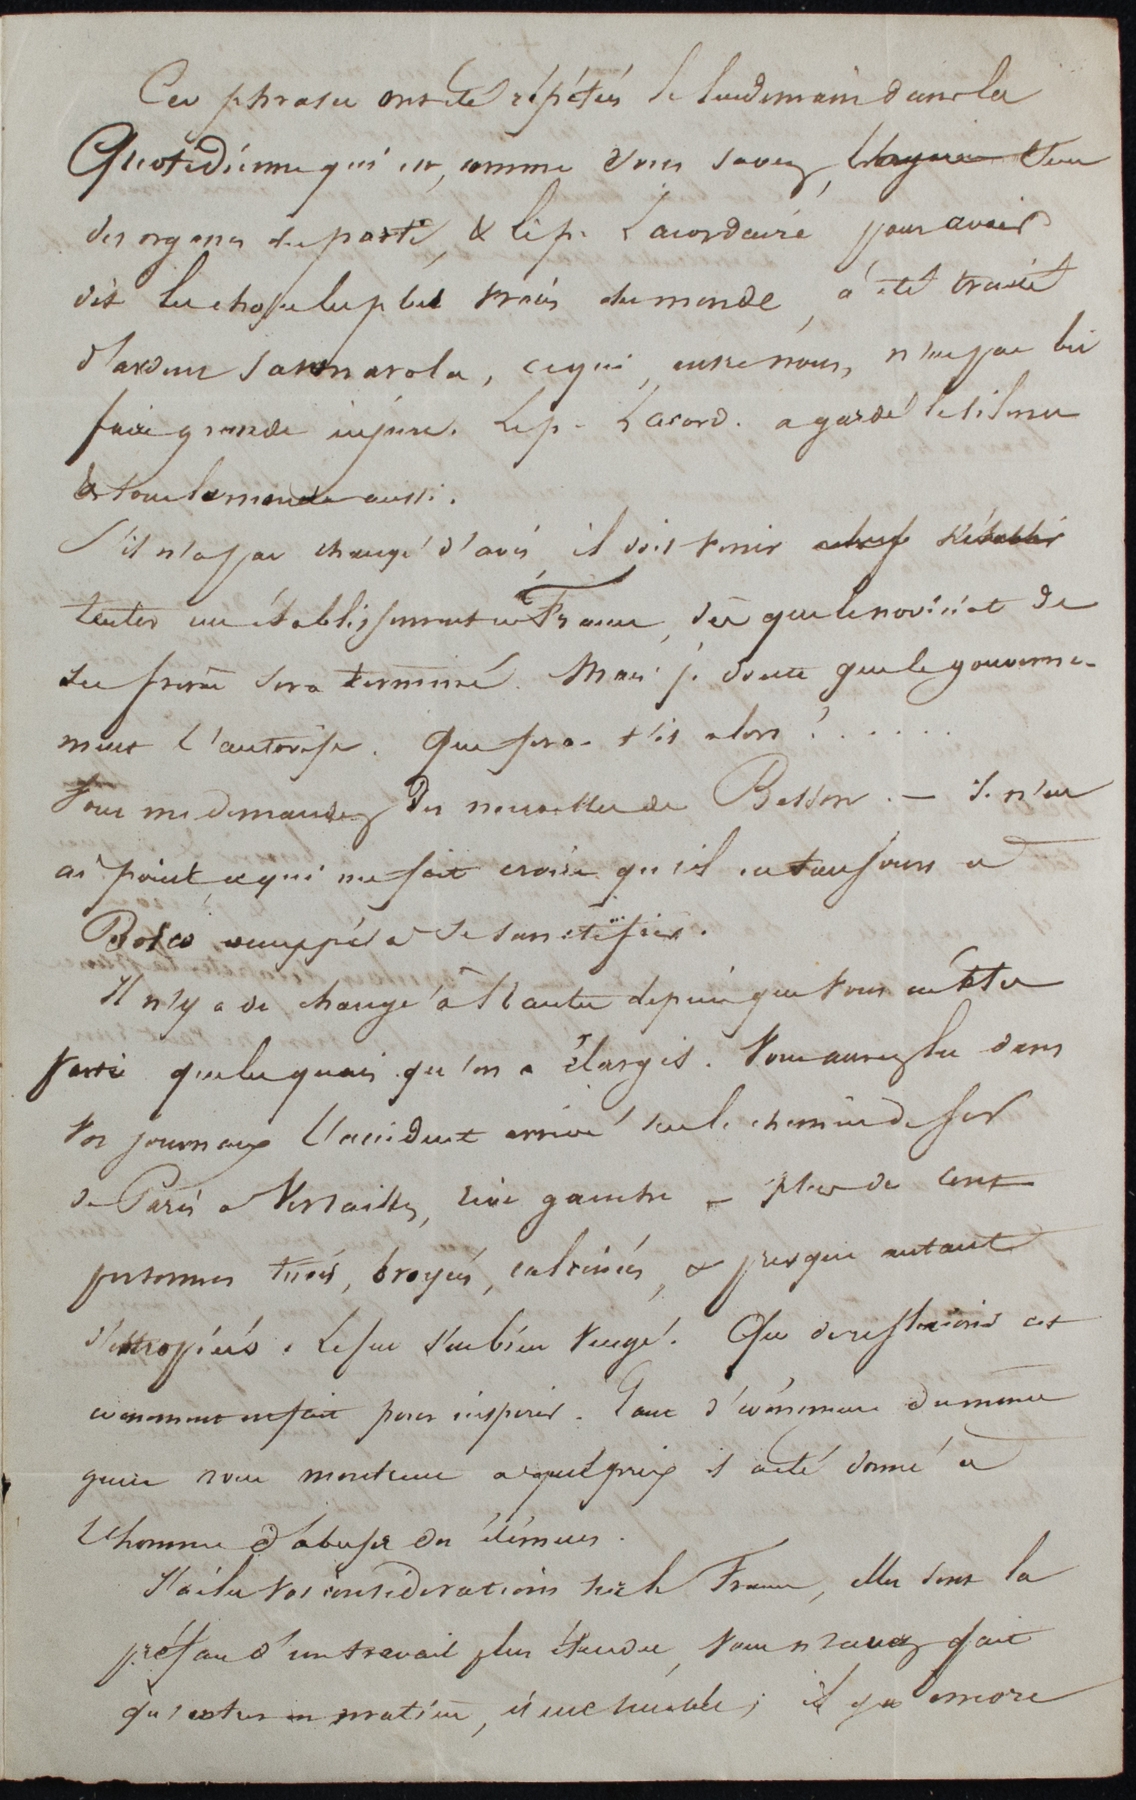 Ces phrases ont été répétées le lendemain dans la
Quotidienne qui est, comme vous savez, l'un
des organes du parti, & le p. Lacordaire pour avoir
dit les choses les plus vraies du monde, a été traité
d'ardent Savonarola, ce qui, entre nous, n'est pas lui
faire grande injure. Le p. Lacord. a gardé le silence
& tout le monde aussi.
S'il n'a pas changé d'avis, il doit venir
tenter un établissement en France, dès que le noviciat de
ses frères sera terminé. Mais je doute que le gouverne-
ment l'autorise. Que fera-t-il alors ? . . . . . .
Vous me demandez des nouvelles de Besson. — Je n'en
ai point, ce qui me fait croire qu'il est toujours à
Bosco occuppé à se sanctifier.
Il n'y a de changé à Nantes depuis que vous en êtes
parti que les quais qu'on a élargis. Vous aurez lu dans
vos journaux l'accident arrivé sur le chemin de fer
de Paris à Versailles, rive gauche — plus de cent
personnes tuées, broyées, calcinées, & presque autant
d'estropiés. Le feu s'est bien vengé. Que de reflexions cet
evenement est fait pour inspirer. Tant d'évènemens du même
genre nous montrent à quel prix il a été donné à
l'homme d'abuser des élémens.
J'ai lu vos considérations sur la France, elles sont la
préface d'un travail plus étendu, vous n'avez fait
qu'entrer en matière, il me semble ; il y a encore